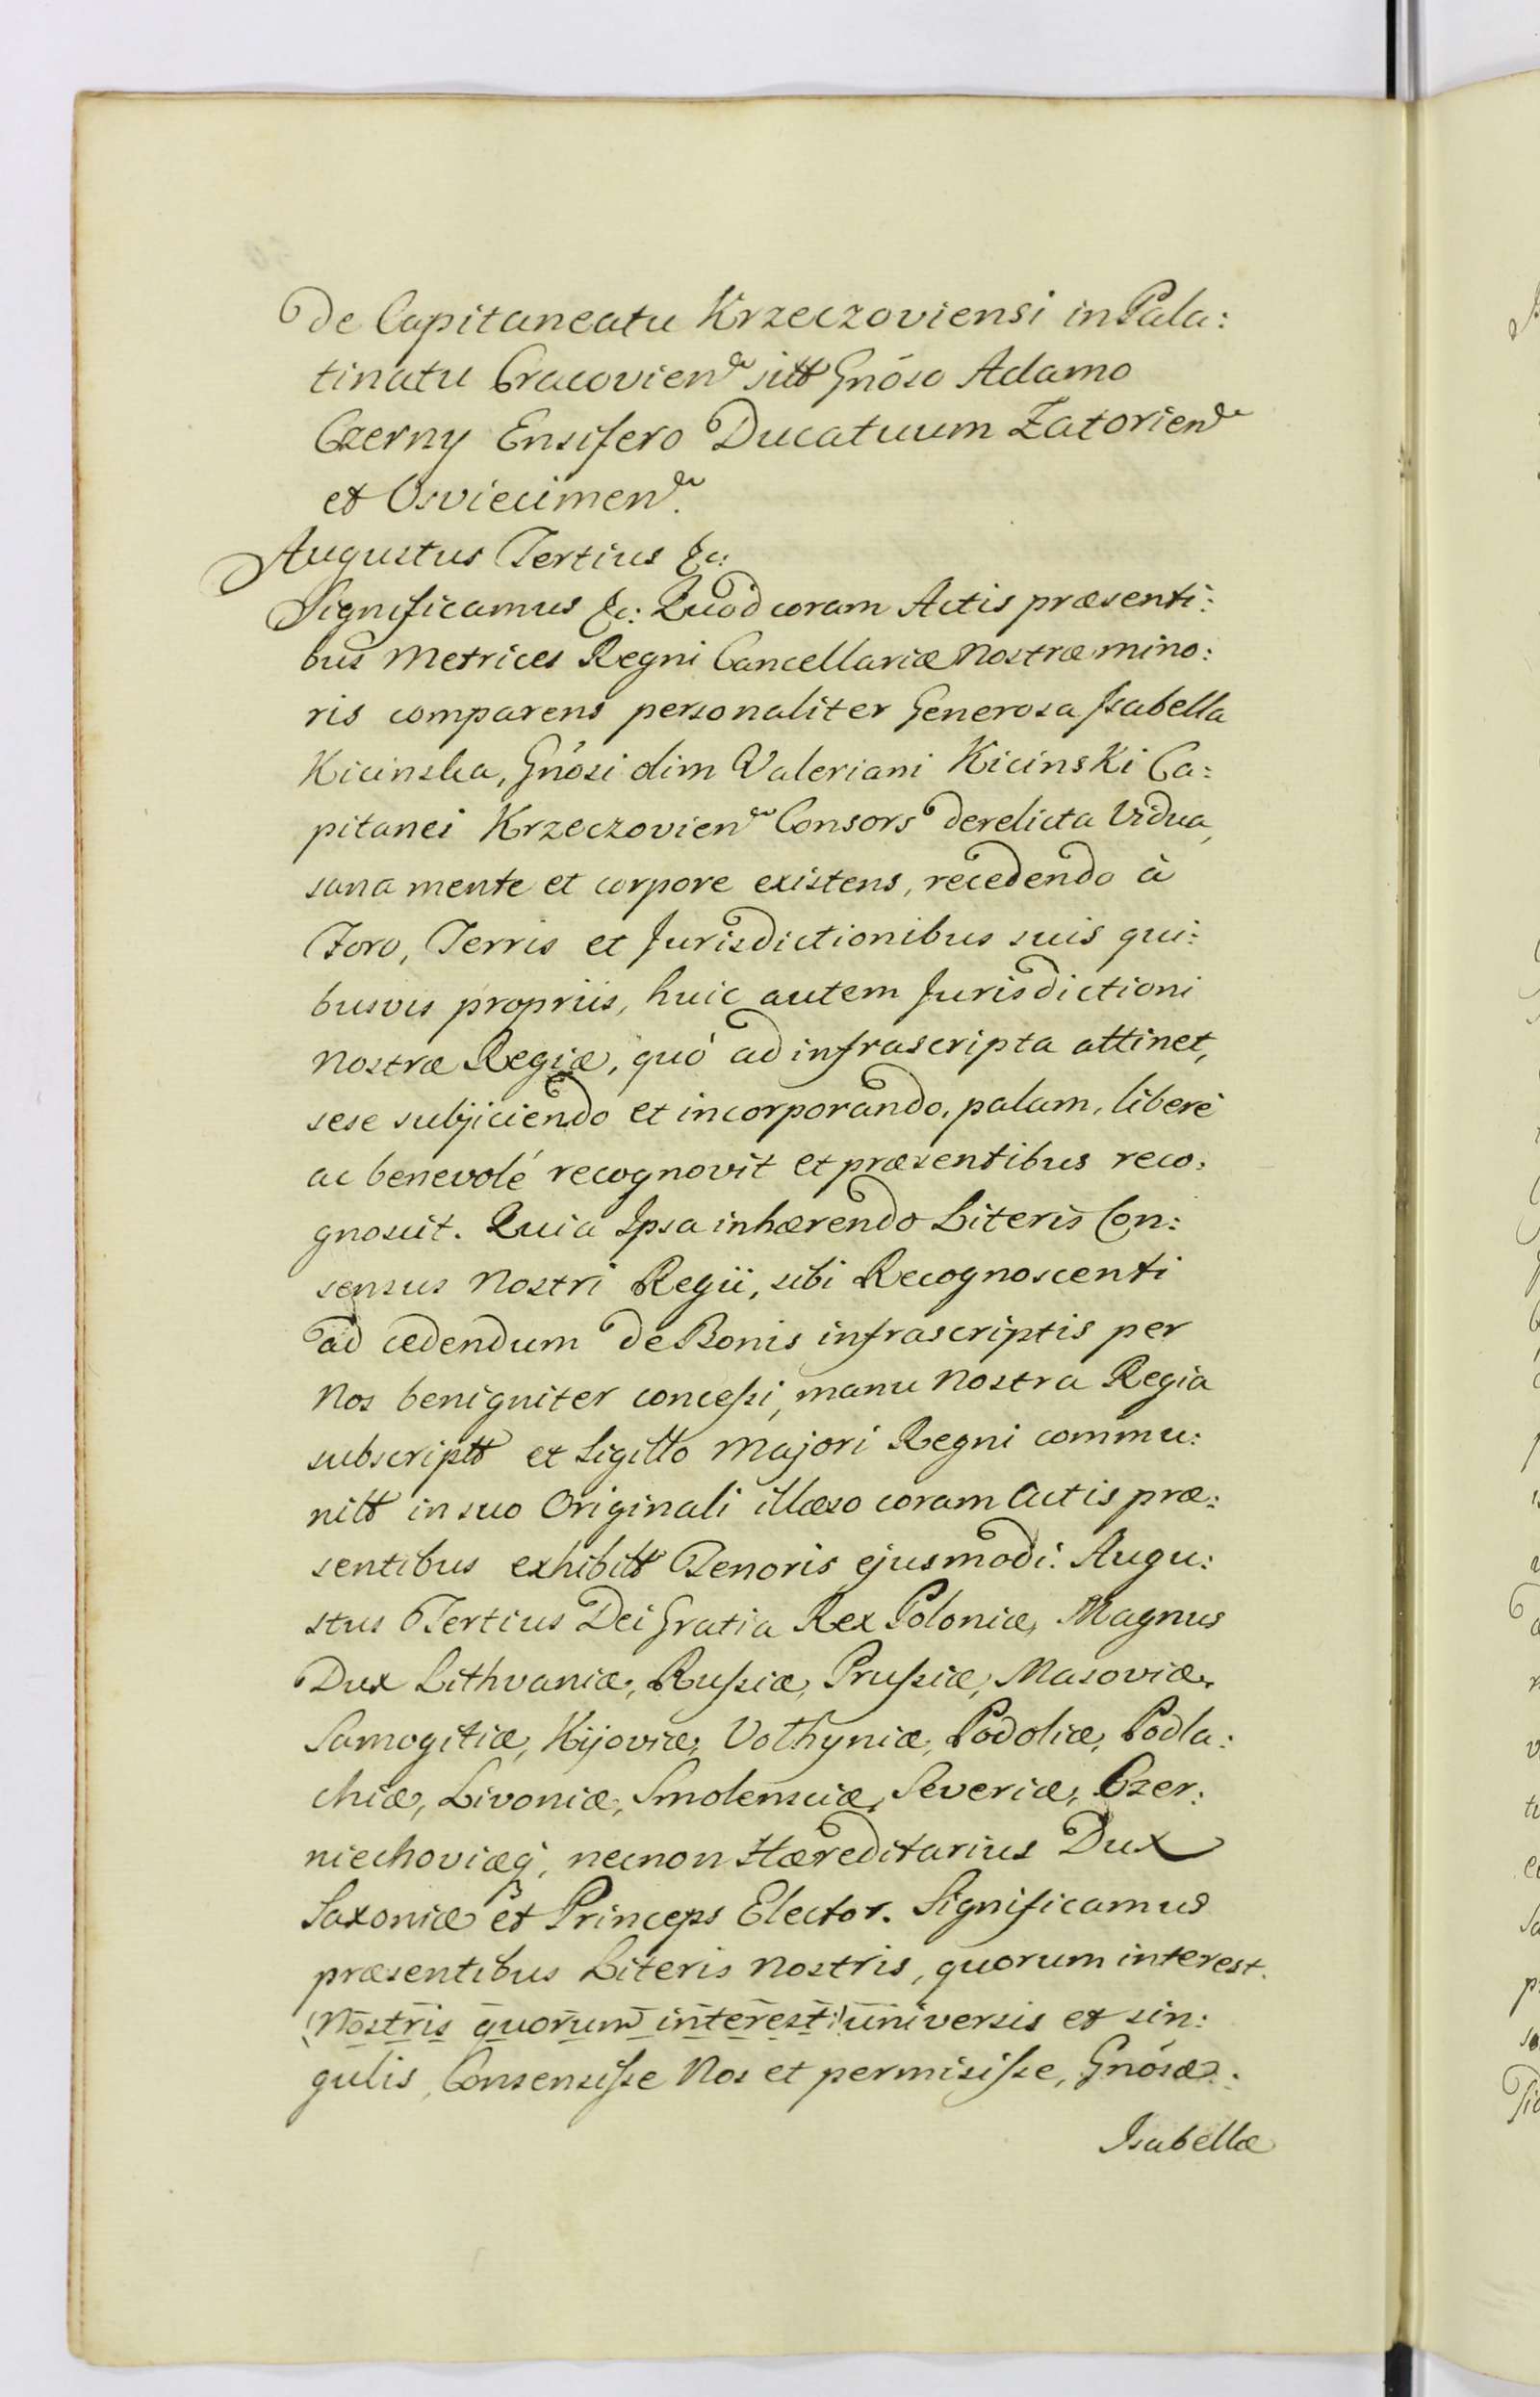 De Capitaneatu Krzeczoviensi in Pala:
tinatu Cracovien. sitt Gnōso Adamo
Czerny Ensifero Ducatuum Zatorien.
et Osviecimen.
Augustus Tertius &c:
Significamus &c: Quod coram Actis præsenti:
bus Metrices Regni Cancellariæ Nostræ mino:
ris comparens personaliter Generosa Isabella
Kicinska, Gnōsi olim Valeriani Kicinski Ca:
pitanei Krzeczovien. Consors derelicta Vidua,
sana mente et corpore existens, recedendo à
Foro, Terris et Jurisdictionibus suis qui:
busvis propriis, huic autem Jurisdictioni
Nostræ Regiæ, quó ad infrascripta attinet,
sese subjiciendo et incorporando, palam, liberè
ac benevolé recognovit et præsentibus reco:
gnoscit. Quia Ipsa inhærendo Literis Con:
sensus Nostri Regii, sibi Recognoscenti
ad cedendum de Bonis infrascriptis per
Nos benigniter conceſsi, manu Nostra Regia
subscriptt et Sigillo Majori Regni commu:
nitt in suo Originali illæso coram Actis præ:
sentibus exhibitt Tenoris ejusmodi: Augu:
stus Tertius Dei Gratia Rex Poloniæ, Magnus
Dux Lithvaniæ, Ruſsiæ, Pruſsiæ, Masoviæ,
Samogitiæ, Kijoviæ, Volhyniæ, Podoliæ, Podla:
chiæ, Livoniæ, Smolensciæ, Severiæ, Czer:
niechoviæq, necnon Hæreditarius Dux
Saxoniæ et Princeps Elector. Significamus
præsentibus Literis Nostris, quorum interest.
(Nostris quorum interest:) universis et sin:
gulis, Consensiſse Nos et permisiſse, Gnōsæ.
Isabellæ